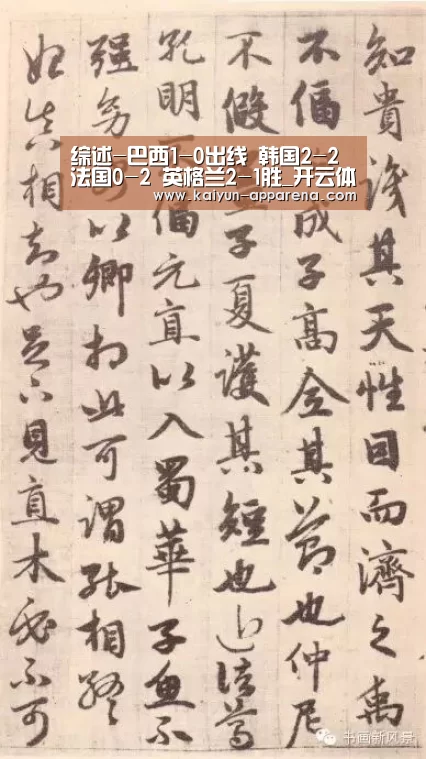 综述-巴西1-0出线 韩国2-2
法国0-2 英格兰2-1胜_开云体
www.kaiyun-apparena.com
知貴識其天性因而濟之禹
不偪成子高全其節也仲尼
不假子夏護其短也近諸葛
孔明不偪元直以入蜀華子魚不
强幼以卿相此可謂能相終
始真相知也足下見直木必不可
书画新风景